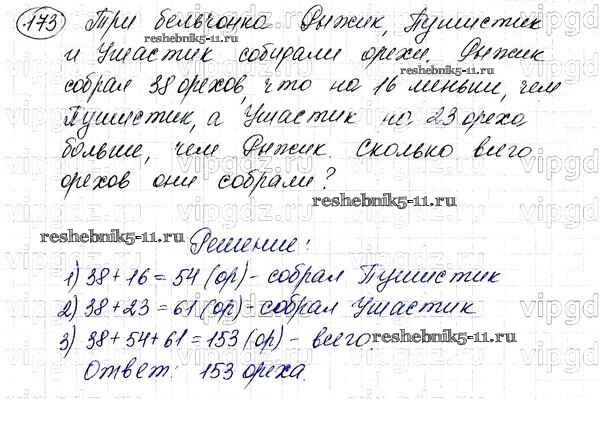 173 Три бельчонка Рыжик, Пушистик
и Ушастик собирали орехи. Рыжик
reshebnik5-11.ru
reshebnik5-11.ru
собрал 38 орехов, что на 16 меньши, чем
Пушистик, а Ушастик на 23 ореха
больше, чем Рыжик. Сколько всего
орехов они собрали?
reshebnik5-11.ru
reshebnik5-11.ru
Решение:
1) 38 + 16 = 54 (ор) - собрал Пушистик
2) 38 + 23 = 61 (ор) - собрал Ушастик
3) 38 + 54 + 61 = 153 (ор) - всего.
reshebnik5-11.ru
Ответ: 153 ореха.